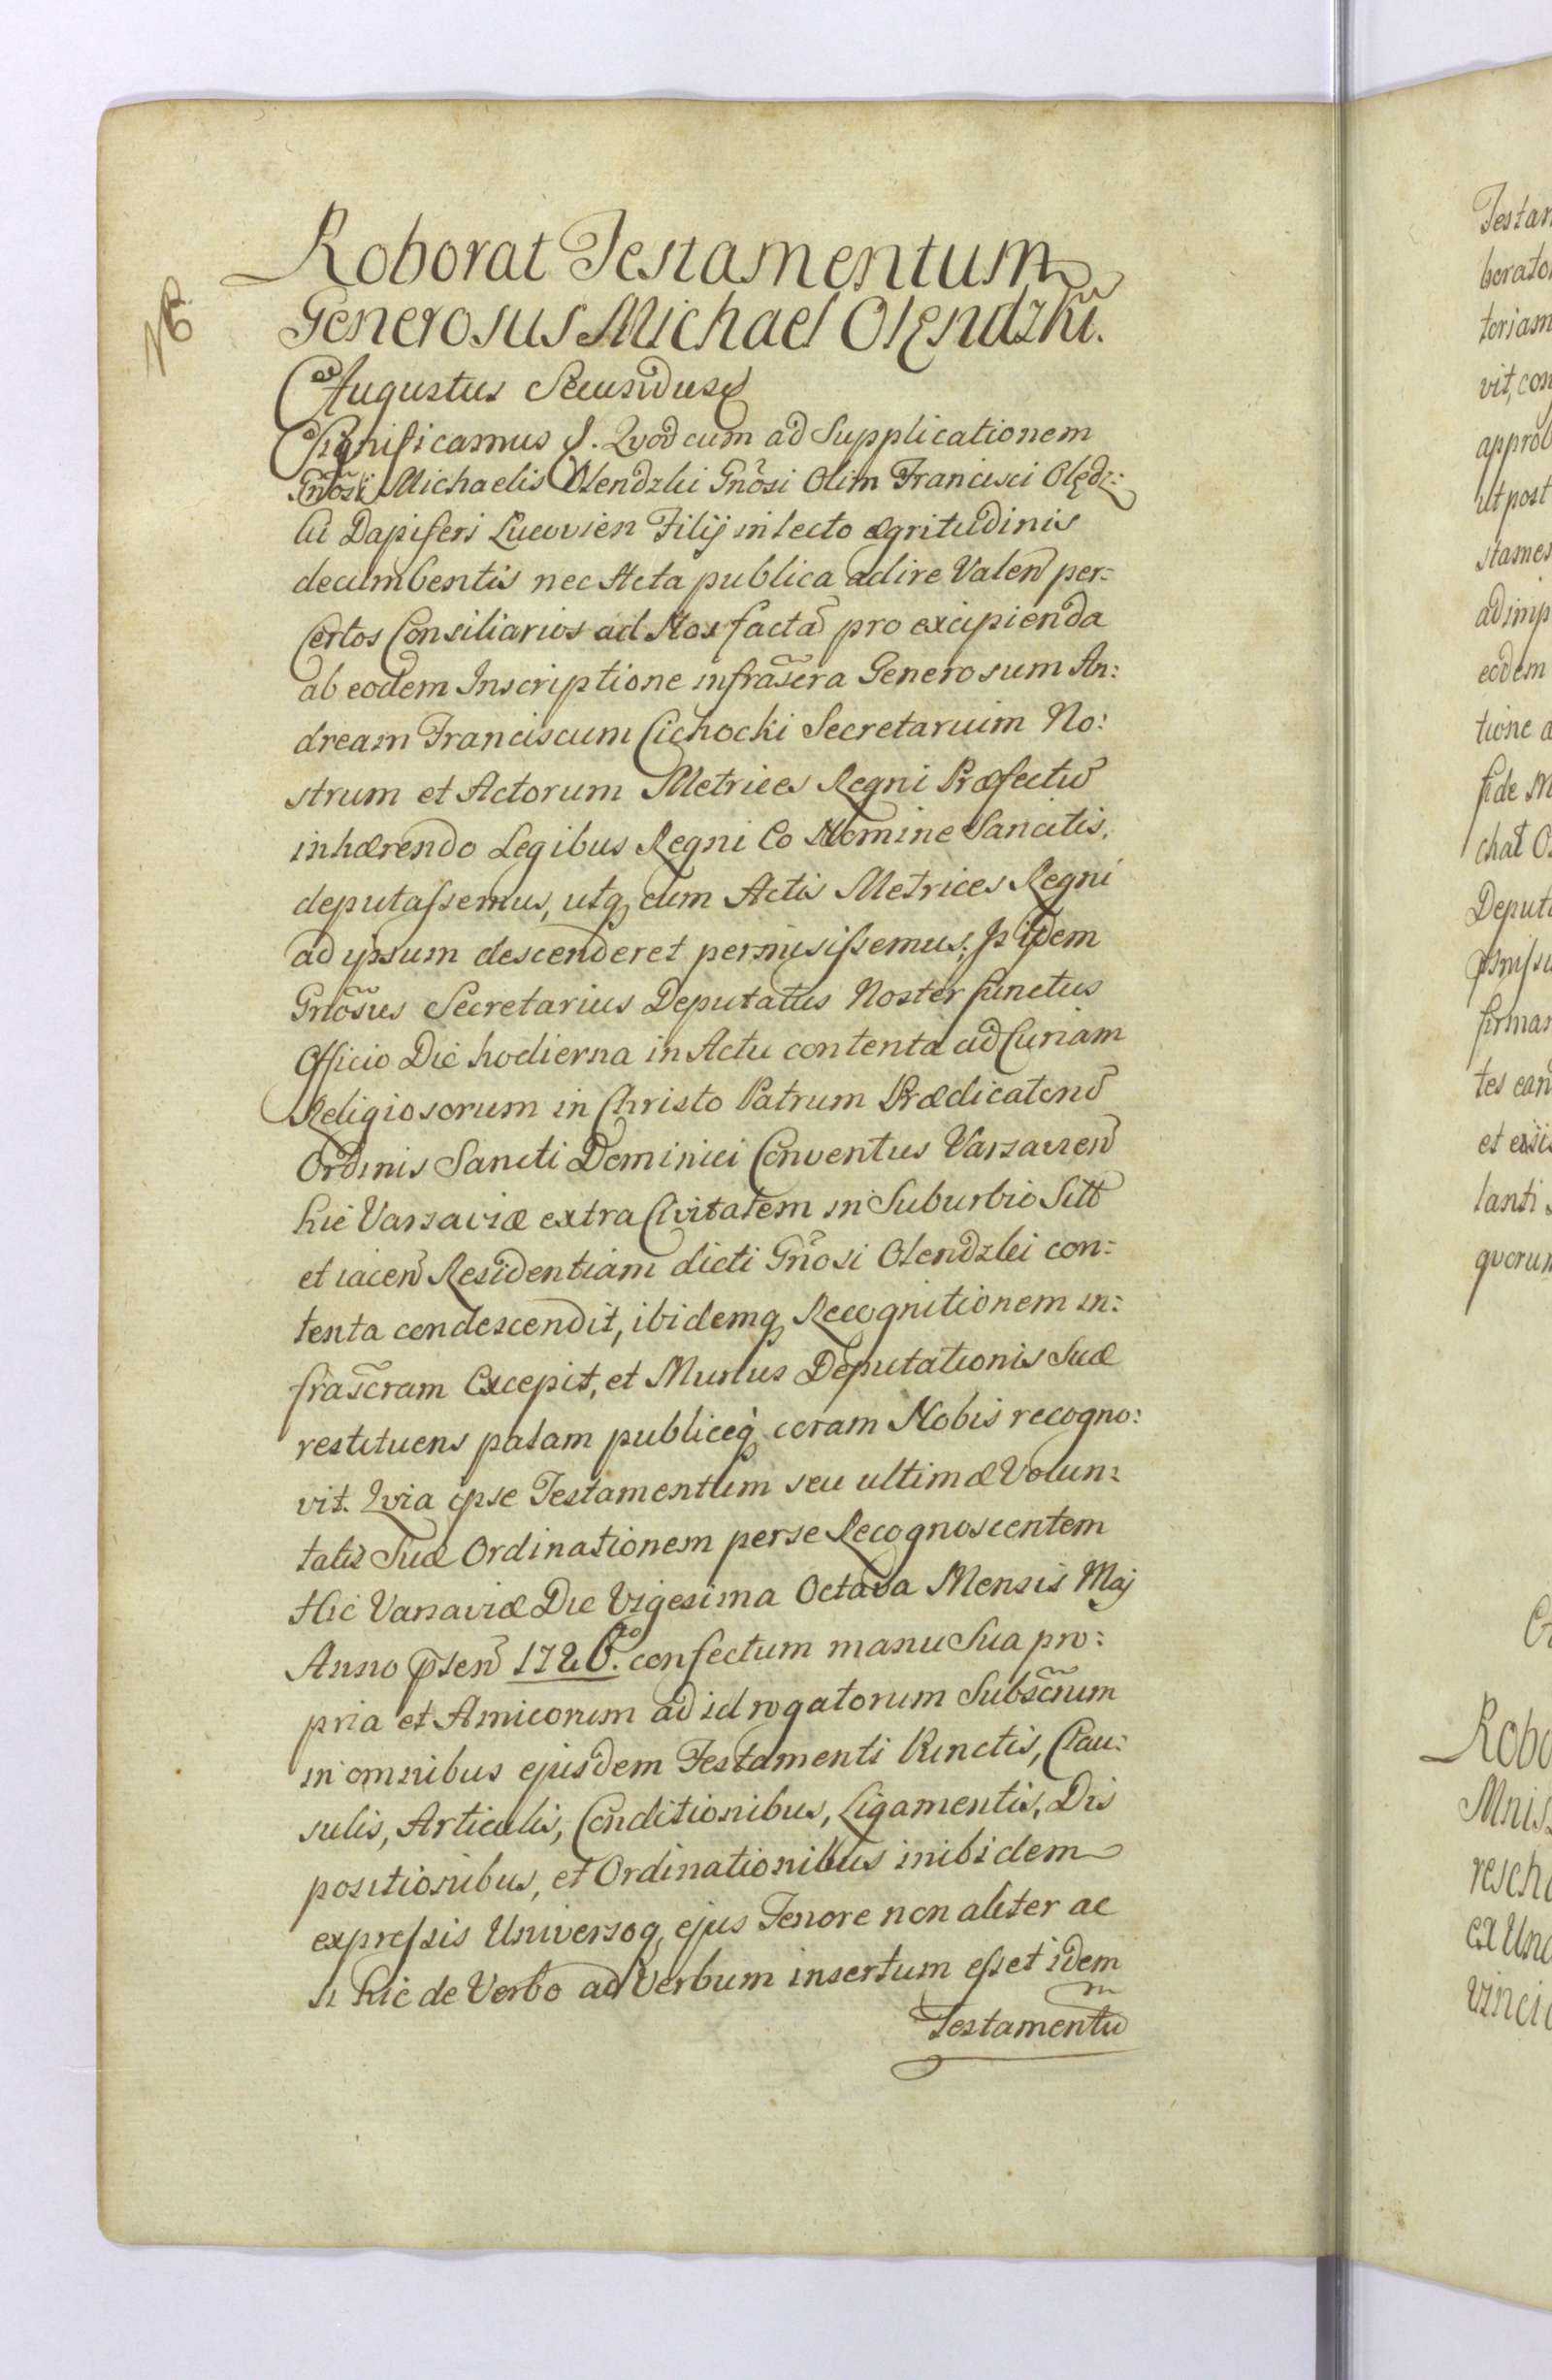 NB.
Roborat Testamentum
Generosus Michael Olendzki.
Augustus Secundus
Significamus &. Qvod cum ad Supplicationem
Gnõsi Michaelis Olendzki Gnõsi Olim Francisci Olędz:
ki Dapiferi Lucovien Filij in lecto ægritudinis
decumbentis nec Acta publica adire Valeñ per:
Certos Consiliarios ad Nos factã pro excipienda
ab eodem Inscriptione infrãscra Generosum An:
dream Franciscum Cichocki Secretarium No:
strum et Actorum Metrices Regni Præfectũ
inhærendo Legibus Regni Eo Nomine Sancitis,
deputassemus, utq cum Actis Metrices Regni
ad ipsum descenderet permisissemus; Is idem
Gnõsus Secretarius Deputatus Noster functus
Officio Die hodierna in Actu contenta ad Curiam
Religiosorum in Christo Patrum Prædicatorũ
Ordinis Sancti Dominici Conventus Varsavieñ
hic Varsaviæ extra Civitatem in Suburbio Sitt
et iaceñ Residentiam dicti Gnõsi Olendzki con:
tenta condescendit, ibidemq Recognitionem in:
frãscram Excepit, et Munus Deputationis Suæ
restituens palam publiceq coram Nobis recogno:
vit. Qvia ipse Testamentum seu ultimæ Volun:
tatis Suæ Ordinationem per se Recognoscentem
Hic Varsaviæ Die Vigesima Octava Mensis Maj
Anno p̃señ 1726.to confectum manu Sua pro:
pria et Amicorum ad id rogatorum Subscr̃um
in omnibus ejusdem Testamenti Punctis, Clau:
sulis, Articulis, Conditionibus, Ligamentis, Dis
positionibus, et Ordinationibus inibidem
expressis Universoq ejus Tenore non aliter ac
si hic de Verbo ad Verbum insertum esset idem
Testamentũ
Testam
borato
toriam
vit, con
approb
ut post
stamen
ad imp
eodem
tione a
fide M
chat O
Deputa
firman
tes ean
et exis
lanti
quorum
Robo
Mnis
resch
ex Und
Vinci